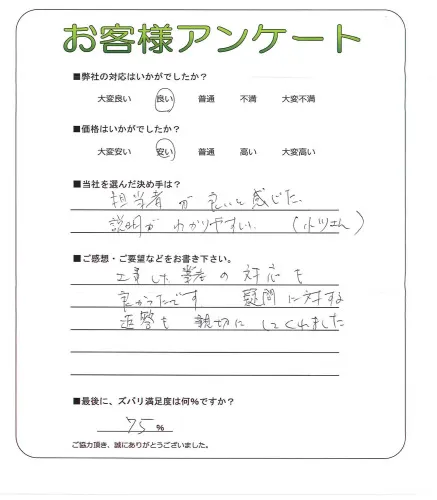 お客様アンケート
■弊社の対応はいかがでしたか?
大変良い 良い 普通 不満 大変不満
■価格はいかがでしたか?
大変安い 安い 普通 高い 大変高い
■当社を選んだ決め手は?
担当者が良いと感じた.
説明がわかりやすい.
■ご感想・ご要望などをお書き下さい。
工事した業者の対応も
良かったです. 疑問に対する
返答も親切にしてくれました
■最後に、ズバリ満足度は何%ですか?
75%
ご協力頂き、誠にありがとうございました。